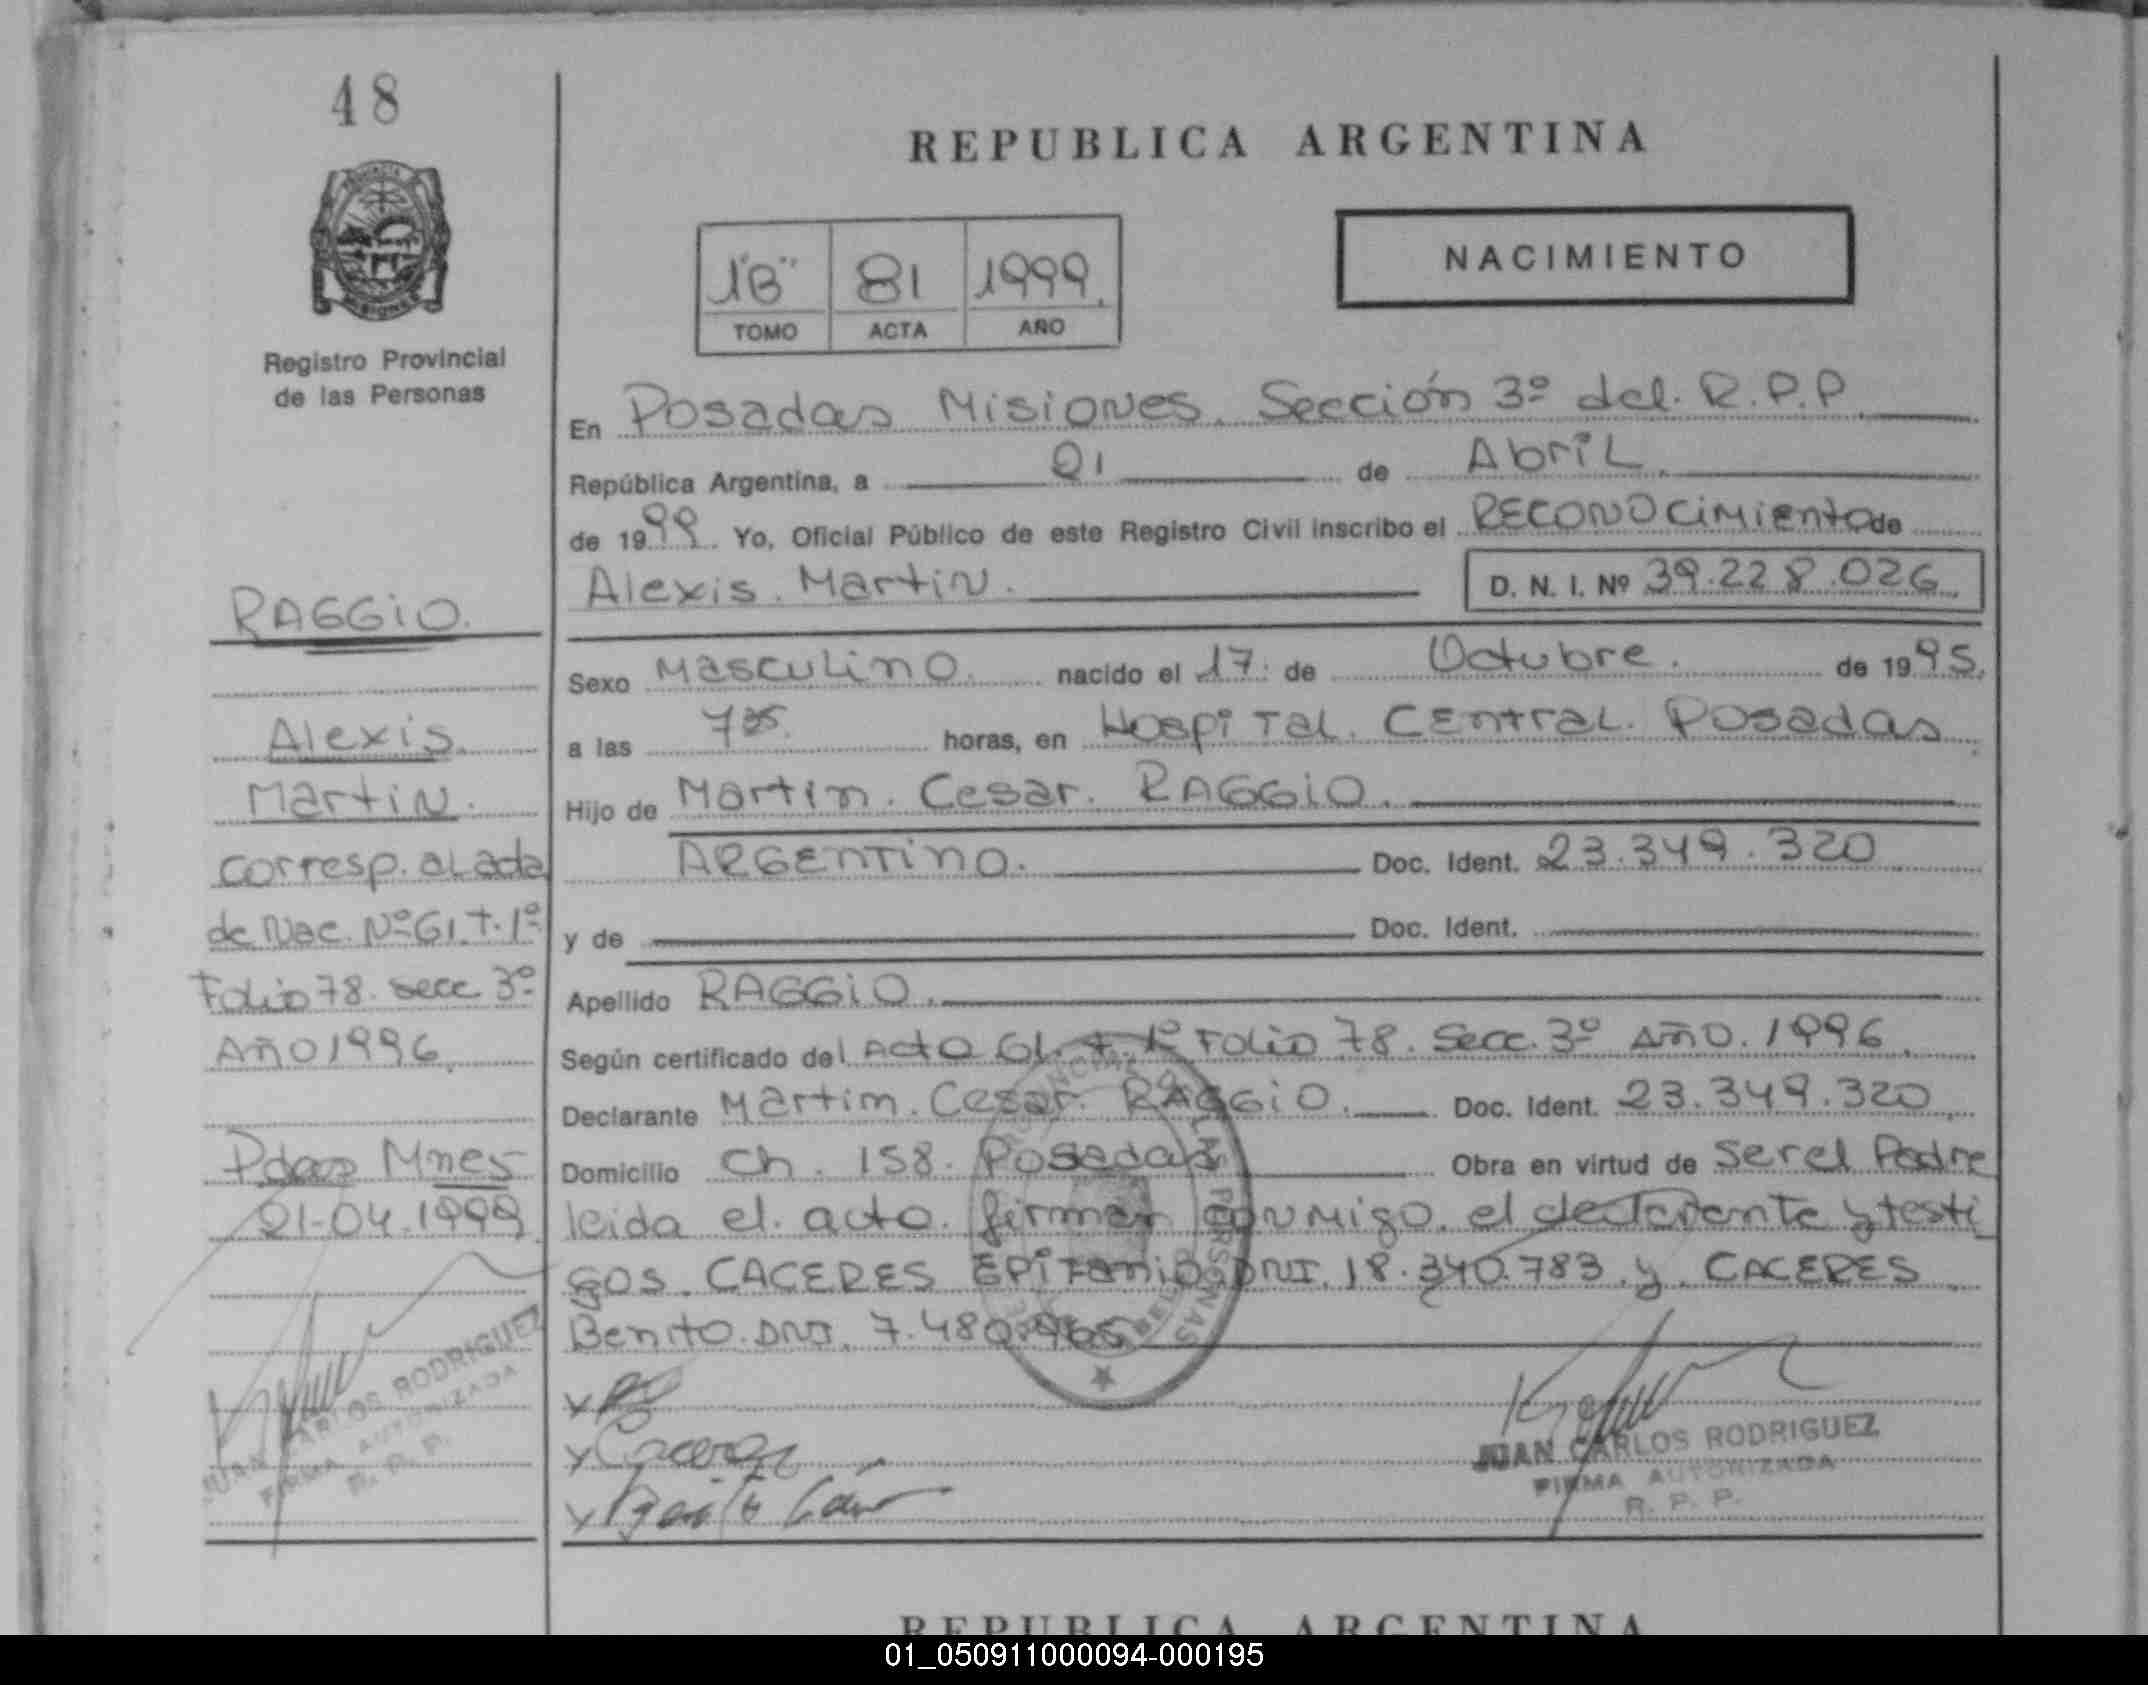 48
REPUBLICA ARGENTINA
NACIMIENTO
1"B" 81 1999.
TOMO ACTA AÑO
Registro Provincial
de las Personas
En Posadas Misiones. Sección 3º del. R.P.P.
República Argentina, a 21 de Abril.
de 1999. Yo, Oficial Público de este Registro Civil inscribo el RECONOCimiento de
Alexis. Martin. D. N. I. Nº 39.228.026.
RAGGiO.
Sexo Masculino. nacido el 17. de Octubre. de 1995.
Alexis.
a las 7 35. horas, en Hospital. Central. Posadas
Martin.
Hijo de Martin. Cesar. RAGGiO.
corresp. al acta
ARGENTINO. Doc. Ident. 23.349.320
de Nac. Nº 61. T. 1º
y de Doc. Ident.
Folio 78. secc. 3º
Apellido RAGGiO.
Año 1996.
Según certificado del Acta 61. T. 1º Folio 78. Secc. 3º Año. 1996.
Declarante Martin. Cesar. RAGGiO. Doc. Ident. 23.349.320.
Pdas Mnes
Domicilio Ch. 158. Posadas Obra en virtud de Ser el Padre
21-04.1999
leida el. acta. firman conmigo. el declarante y testi
gos. CACERES EPifanio DNI. 18.340.783. y. CACERES
Benito. DNI. 7.480.965
PERSONAS
JUAN CARLOS RODRIGUEZ
FIRMA AUTORIZADA
R. P. P.
JUAN CARLOS RODRIGUEZ
FIRMA AUTORIZADA
R. P. P.
REPUBLICA ARGENTINA
01_050911000094-000195